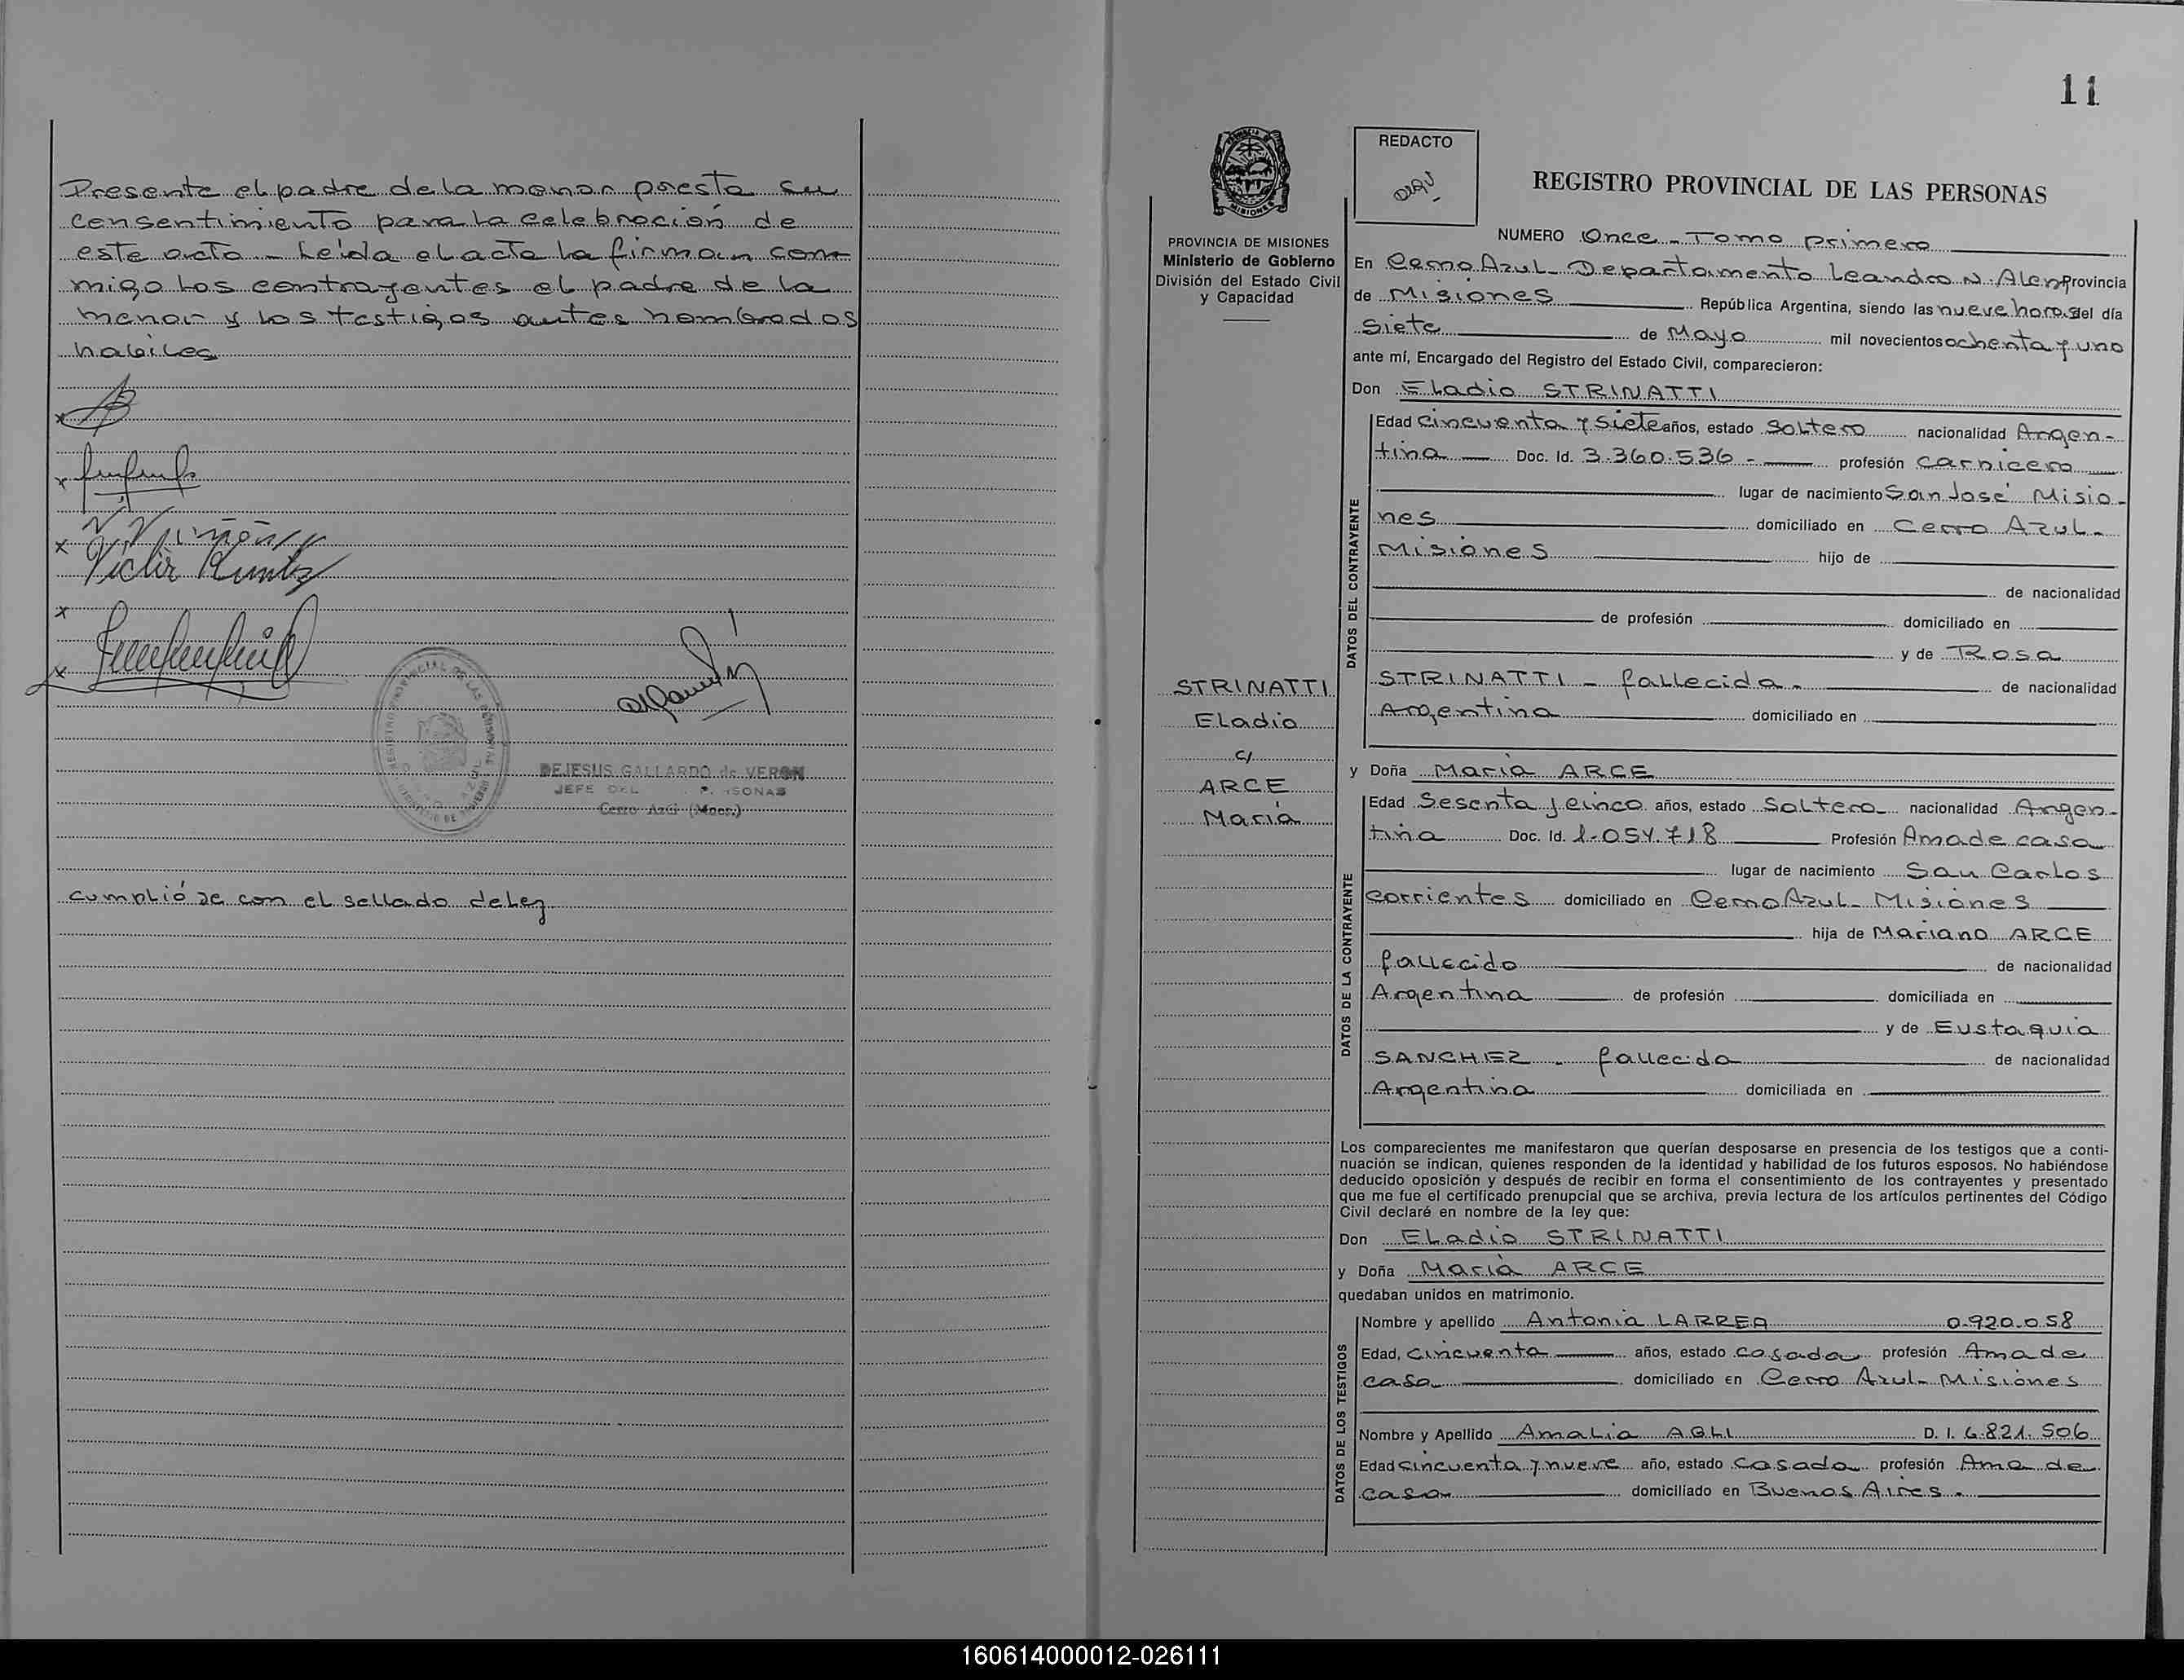 Presente el padre de la menor presta su
consentimiento para la celebración de
este acto - Leída el acta la firman con
migo los contrayentes el padre de la
menor y los testigos antes nombrados
habiles
DEJESUS GALLARDO de VERON
JEFE DEL
Cerro Azul (Mnes.)
cumplióse con el sellado de ley
11
REDACTO
REGISTRO PROVINCIAL DE LAS PERSONAS
PROVINCIA DE MISIONES
Ministerio de Gobierno
División del Estado Civil
y Capacidad
NUMERO Once - Tomo primero
En Cerro Azul - Departamento Leandro N. Alem Provincia
de Misiones República Argentina, siendo las nueve horas del día
Siete de Mayo mil novecientos ochenta y uno
ante mí, Encargado del Registro del Estado Civil, comparecieron:
Don Eladio STRINATTI
DATOS DEL CONTRAYENTE
Edad Cincuenta y Siete años, estado Soltero nacionalidad Argen-
tina Doc. Id. 3.360.536 - profesión carnicero
lugar de nacimiento San José Misio-
nes domiciliado en Cerro Azul -
Misiones hijo de
de nacionalidad
de profesión domiciliado en
y de Rosa
STRINATTI - fallecida - de nacionalidad
Argentina domiciliado en
STRINATTI
Eladio
c/
ARCE
María
y Doña María ARCE
DATOS DE LA CONTRAYENTE
Edad Sesenta y cinco años, estado Soltera nacionalidad Argen-
tina Doc. Id. 1.054.718 Profesión Ama de casa
lugar de nacimiento San Carlos
Corrientes domiciliado en Cerro Azul - Misiones
hija de Mariano ARCE
fallecido de nacionalidad
Argentina de profesión domiciliada en
y de Eustaquia
SANCHEZ - fallecida de nacionalidad
Argentina domiciliada en
Los comparecientes me manifestaron que querían desposarse en presencia de los testigos que a conti-
nuación se indican, quienes responden de la identidad y habilidad de los futuros esposos. No habiéndose
deducido oposición y después de recibir en forma el consentimiento de los contrayentes y presentado
que me fue el certificado prenupcial que se archiva, previa lectura de los artículos pertinentes del Código
Civil declaré en nombre de la ley que:
Don Eladio STRINATTI
y Doña María ARCE
quedaban unidos en matrimonio.
DATOS DE LOS TESTIGOS
Nombre y apellido Antonia LARREA 0.920.058
Edad, Cincuenta años, estado casada profesión Ama de
casa domiciliado en Cerro Azul - Misiones
Nombre y Apellido Amalia AGLI D. I. 6.821.506
Edad cincuenta y nueve año, estado casada profesión Ama de
casa domiciliado en Buenos Aires -
160614000012-026111